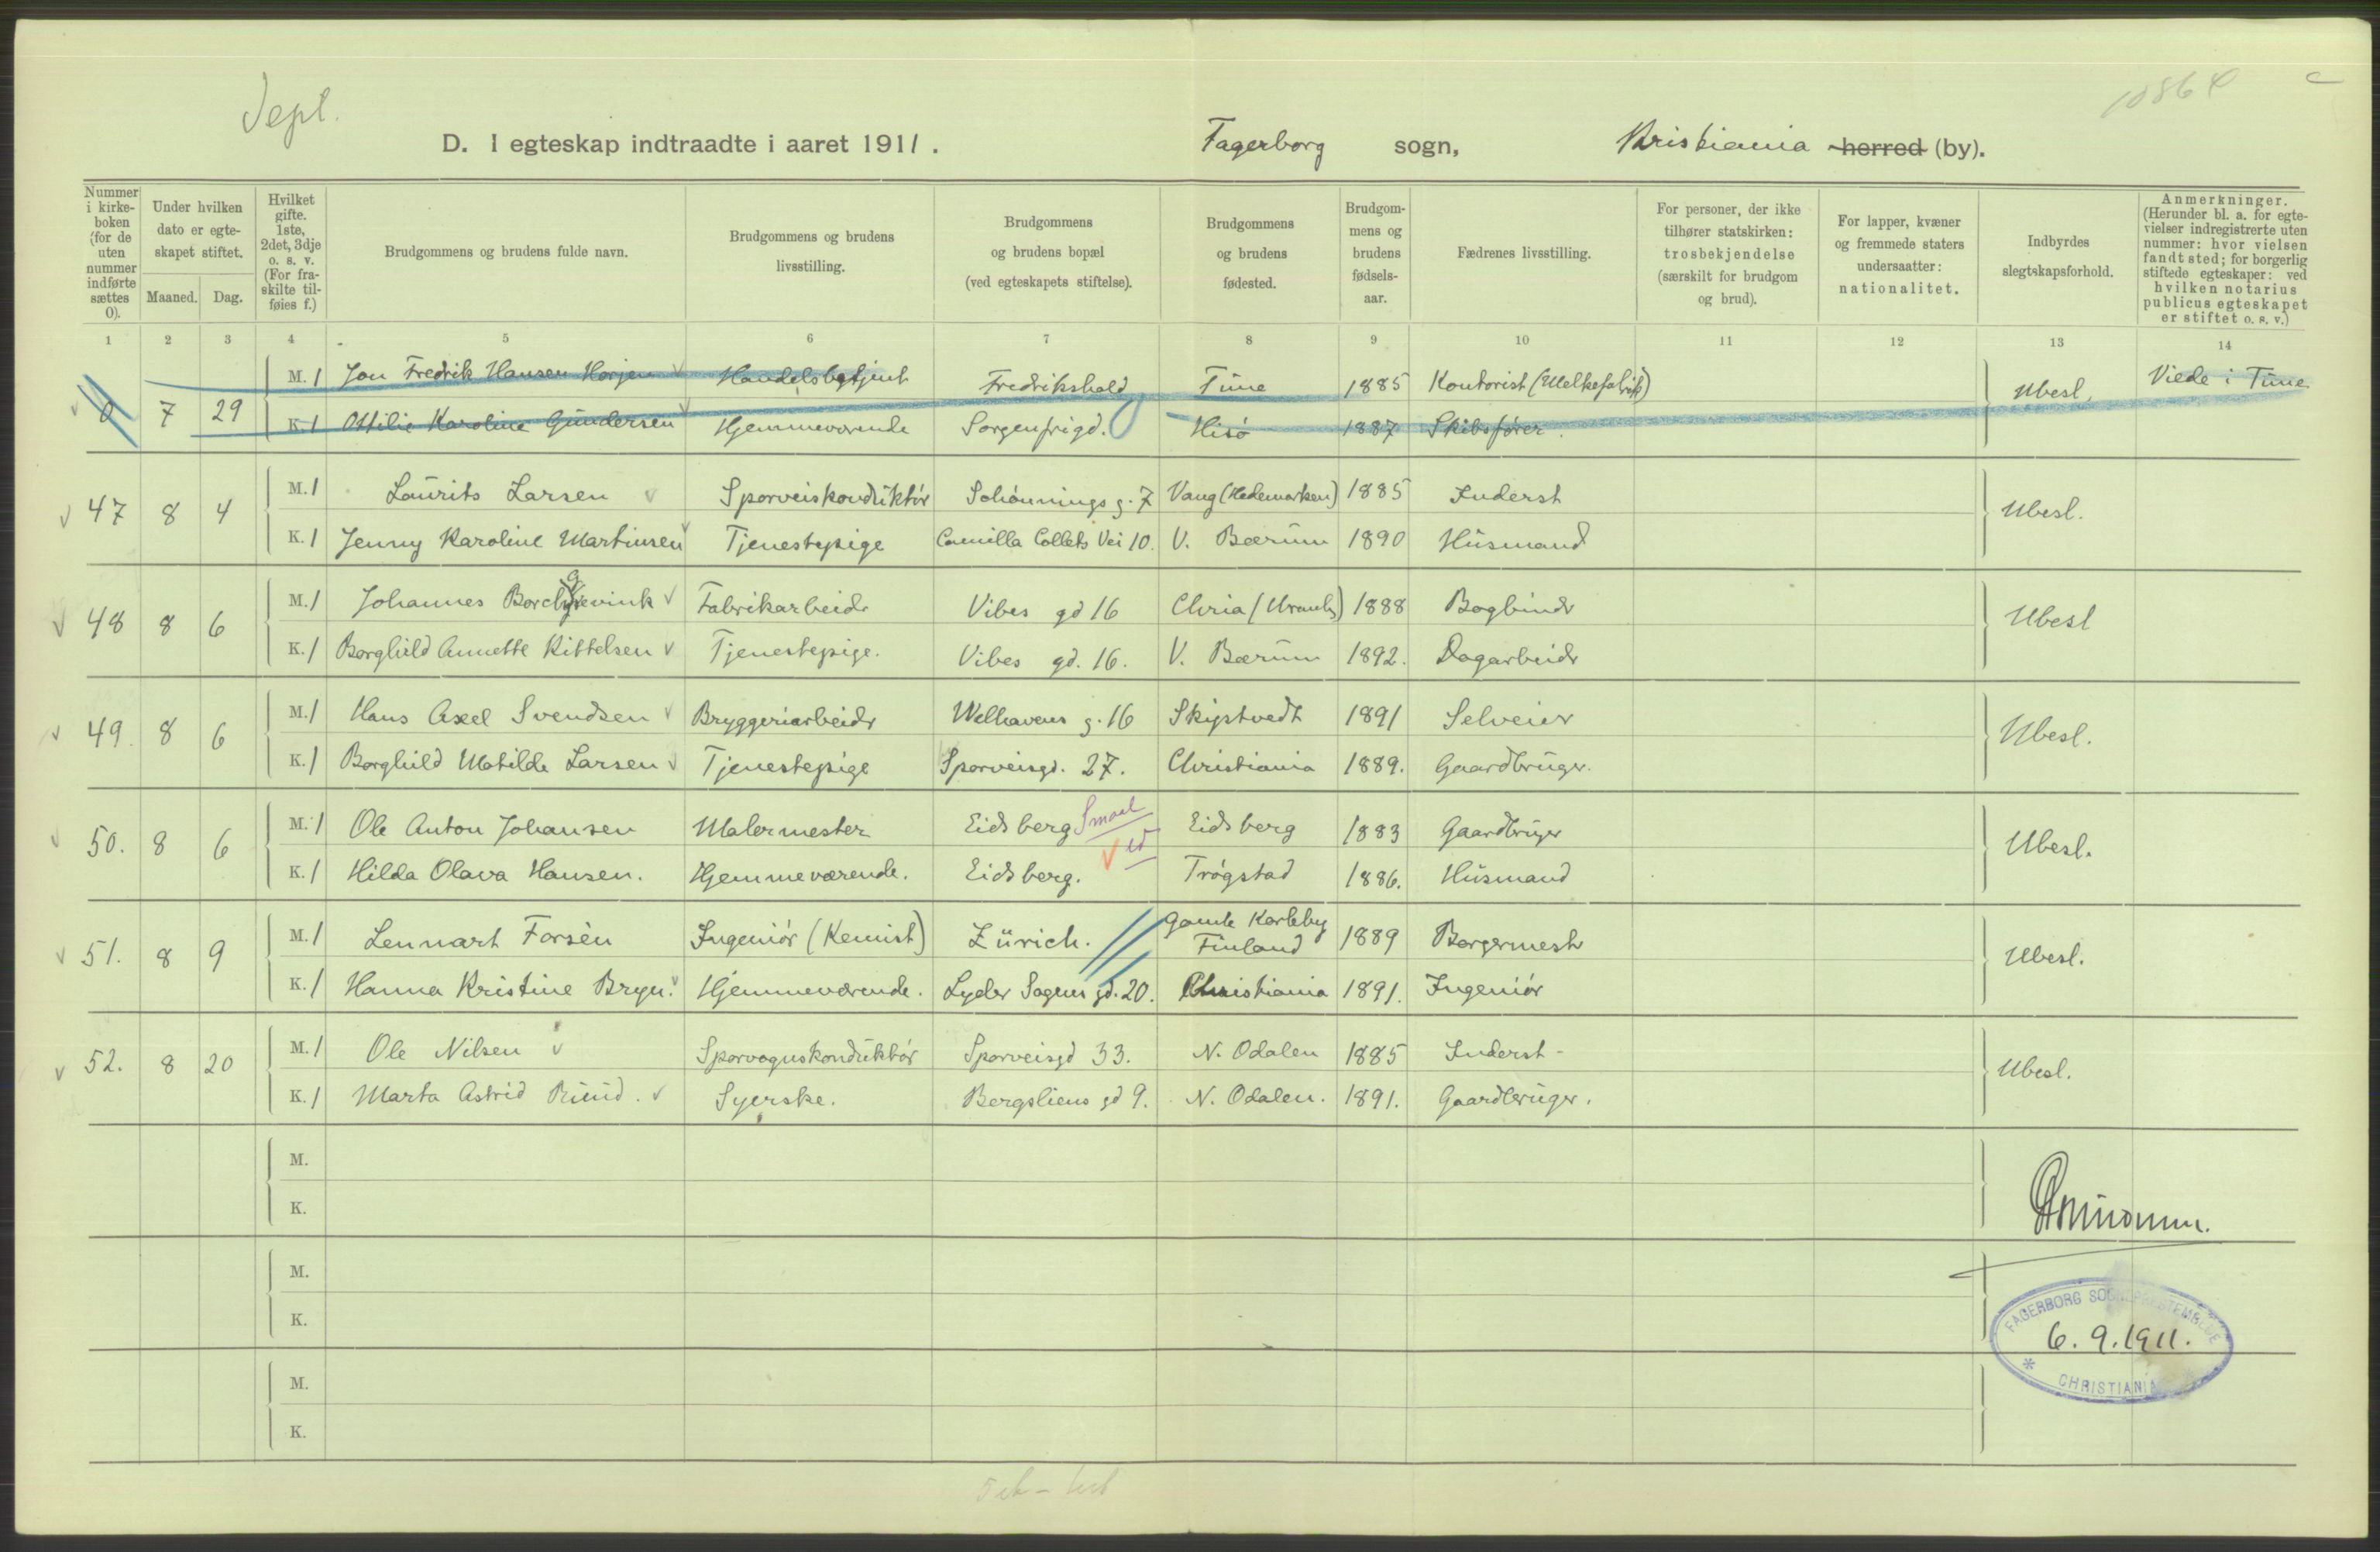 Sept.
D. I egteskap indtraadte i aaret 1911. Fagerborg sogn, Kristiania herred (by).
Nummer i kirkeboken (for de uten nummer indførte sættes 0). Under hvilken dato er egteskapet stiftet. Maaned. Dag. Hvilket gifte. 1ste, 2det, 3dje o. s. v. (For fraskilte tilføies f.) Brudgommens og brudens fulde navn. Brudgommens og brudens livsstilling. Brudgommens og brudens bopæl (ved egteskapets stiftelse). Brudgommens og brudens fødested. Brudgommens og brudens fødselsaar. Fædrenes livsstilling. For personer, der ikke tilhører statskirken: trosbekjendelse (særskilt for brudgom og brud). For lapper, kvæner og fremmede staters undersaatter: nationalitet. Indbyrdes slegtskapsforhold. Anmerkninger. (Herunder bl. a. for egtevielser indregistrerte uten nummer: hvor vielsen fandt sted; for borgerlig stiftede egteskaper: ved hvilken notarius publicus egteskapet er stiftet o. s. v.)
1 2 3 4 5 6 7 8 9 10 11 12 13 14
M. 1 Jon Fredrik Hansen Horjen Handelsbetjent Fredrikshald Tune 1885 Kontorist (Melkefabrik) Viede i Tune
0 7 29 Ubesl.
K. 1 Ottilie Karoline Gundersen Hjemmeværende Sorgenfrigd. Hisø 1887 Skibsfører.
M. 1 Laurits Larsen Sporveiskonduktør Schønnings g. 7 Vang (Hedemarken) 1885 Inderst
47 8 4 Ubesl.
K. 1 Jenny Karoline Martinsen Tjenestepige Camilla Collets Vei 10. V. Bærum 1890 Husmand
M. 1 Johannes Borchgrevink Fabrikarbeidr Vibes gd 16 Chria (Uranb) 1888 Bogbindr
48 8 6 Ubesl
K. 1 Borghild Annette Kittelsen Tjenestepige. Vibes gd. 16. V. Bærum 1892. Dagarbeidr
M. 1 Hans Axel Svendsen Bryggeriarbeidr Welhavens g. 16 Skiptvedt 1891 Selveier
49. 8 6 Ubesl.
K. 1 Borghild Matilde Larsen Tjenestepige Sporveisgd. 27. Christiania 1889. Gaardbruger.
M. 1 Ole Anton Johansen Malermester Eidsberg Smaal Eidsberg 1883 Gaardbruger
50. 8 6 Ubesl.
K. 1 Hilda Olava Hansen. Hjemmeværende. Eidsberg. Trøgstad 1886. Husmand
M. 1 Lennart Forsén Ingeniør (Kemist) Zürich. Gamle Karleby Finland 1889 Borgermestr
51. 8 9 Ubesl.
K. 1 Hanna Kristine Bryn. Hjemmeværende. Lyder Sagens gd. 20. Christiania 1891. Ingeniør
M. 1 Ole Nilsen Sporvognskonduktør Sporveisgd 33. N. Odalen 1885 Inderst
52. 8 20 Ubesl.
K. 1 Marta Astrid Ruud. Syerske. Bergsliens gd 9. N. Odalen. 1891. Gaardbruger.
M.
K.
M.
K.
FAGERBORG SOGNEPRESTEMBEDE
6. 9. 1911.
CHRISTIANIA
M.
K.